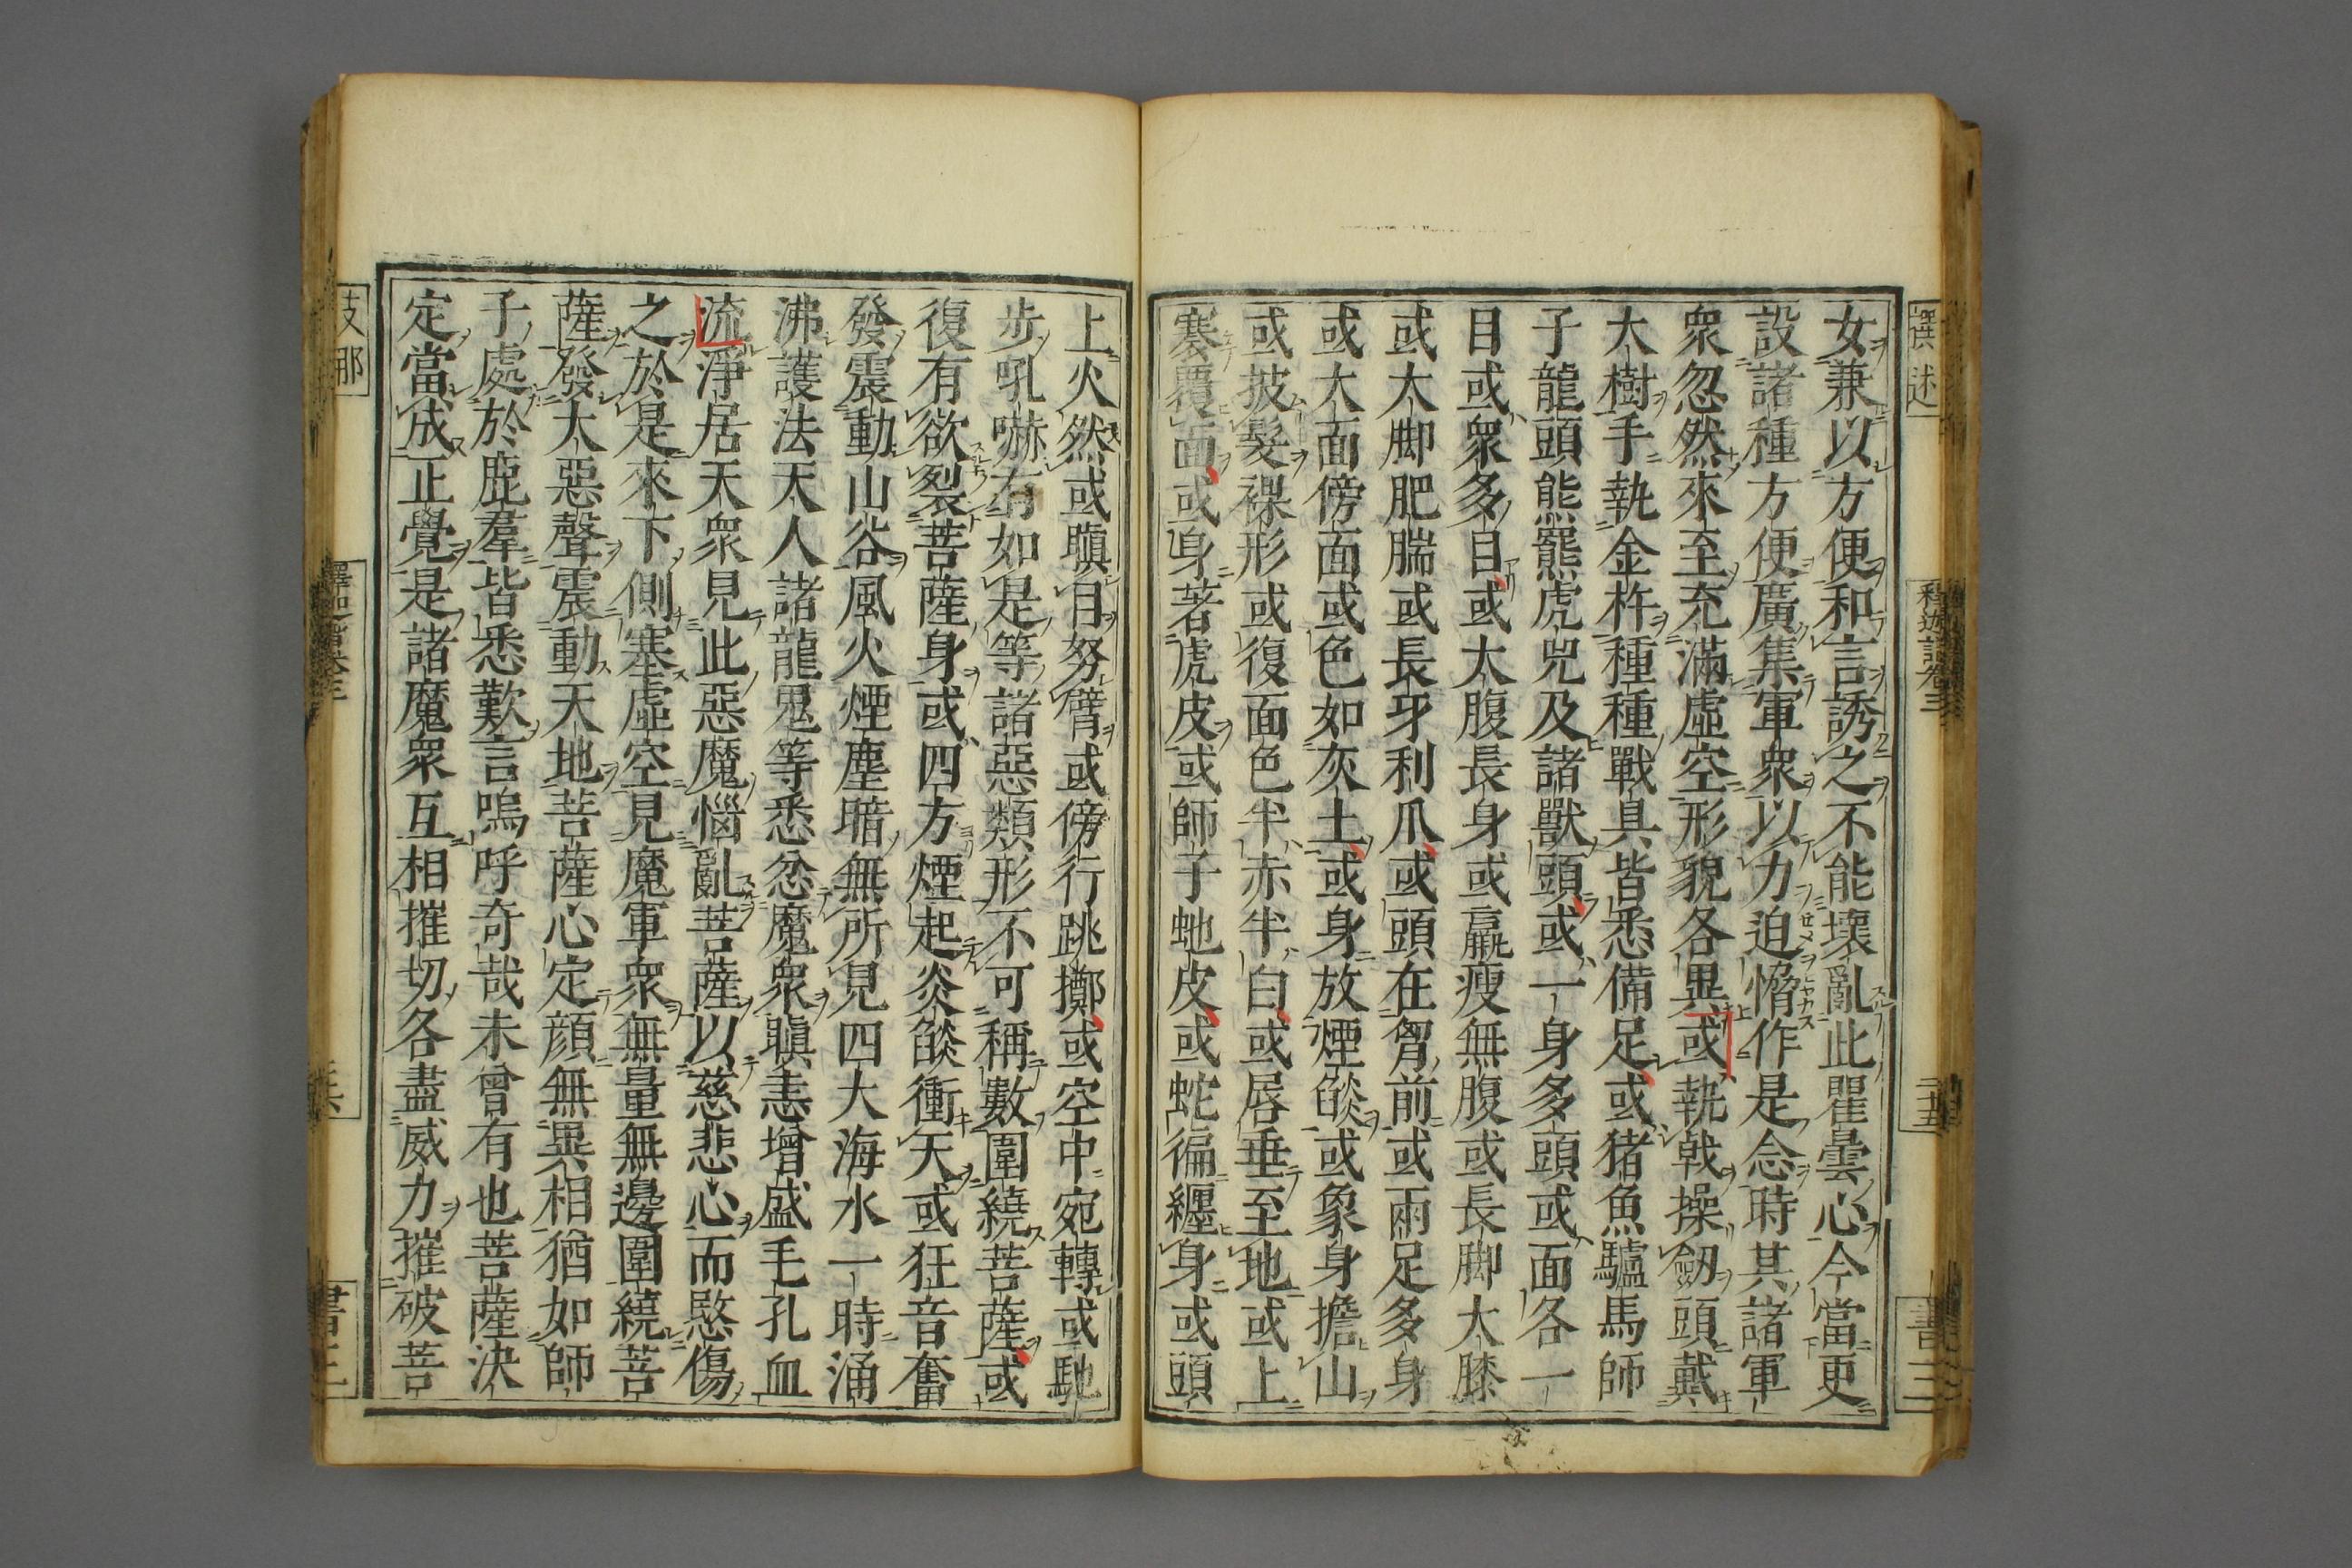 女兼以方便和言誘之不能壞亂此瞿曇心今當更
設諸種方便廣集軍衆以力迫愶作是念時其諸軍
衆忽然來至充滿虛空形貌各異或執戟操劒頭戴
大樹手執金杵種種戰具皆悉備足或猪魚驢馬師
子龍頭熊羆虎兕及諸獸頭或一身多頭或面各一
目或衆多目或大腹長身或羸瘦無腹或長脚大膝
或大脚肥腨或長牙利爪或頭在胷前或兩足多身
或大面傍面或色如灰土或身放煙燄或象身擔山
或披髮裸形或復面色半赤半白或唇垂至地或上
褰覆面或身著虎皮或師子虵皮或蛇徧纒身或頭
上火然或瞋目努臂或傍行跳擲或空中宛轉或馳
步吼嚇有如是等諸惡類形不可稱數圍繞菩薩或
復有欲裂菩薩身或四方煙起炎燄衝天或狂音奮
發震動山谷風火煙塵暗無所見四大海水一時涌
沸護法天人諸龍鬼等悉忿魔衆瞋恚增盛毛孔血
流淨居天衆見此惡魔惱亂菩薩以慈悲心而愍傷
之於是來下側塞虛空見魔軍衆無量無邊圍繞菩
薩發大惡聲震動天地菩薩心定顔無異相猶如師
子處於鹿羣皆悉歎言嗚呼奇哉未曾有也菩薩決
定當成正覺是諸魔衆互相摧切各盡威力摧破菩